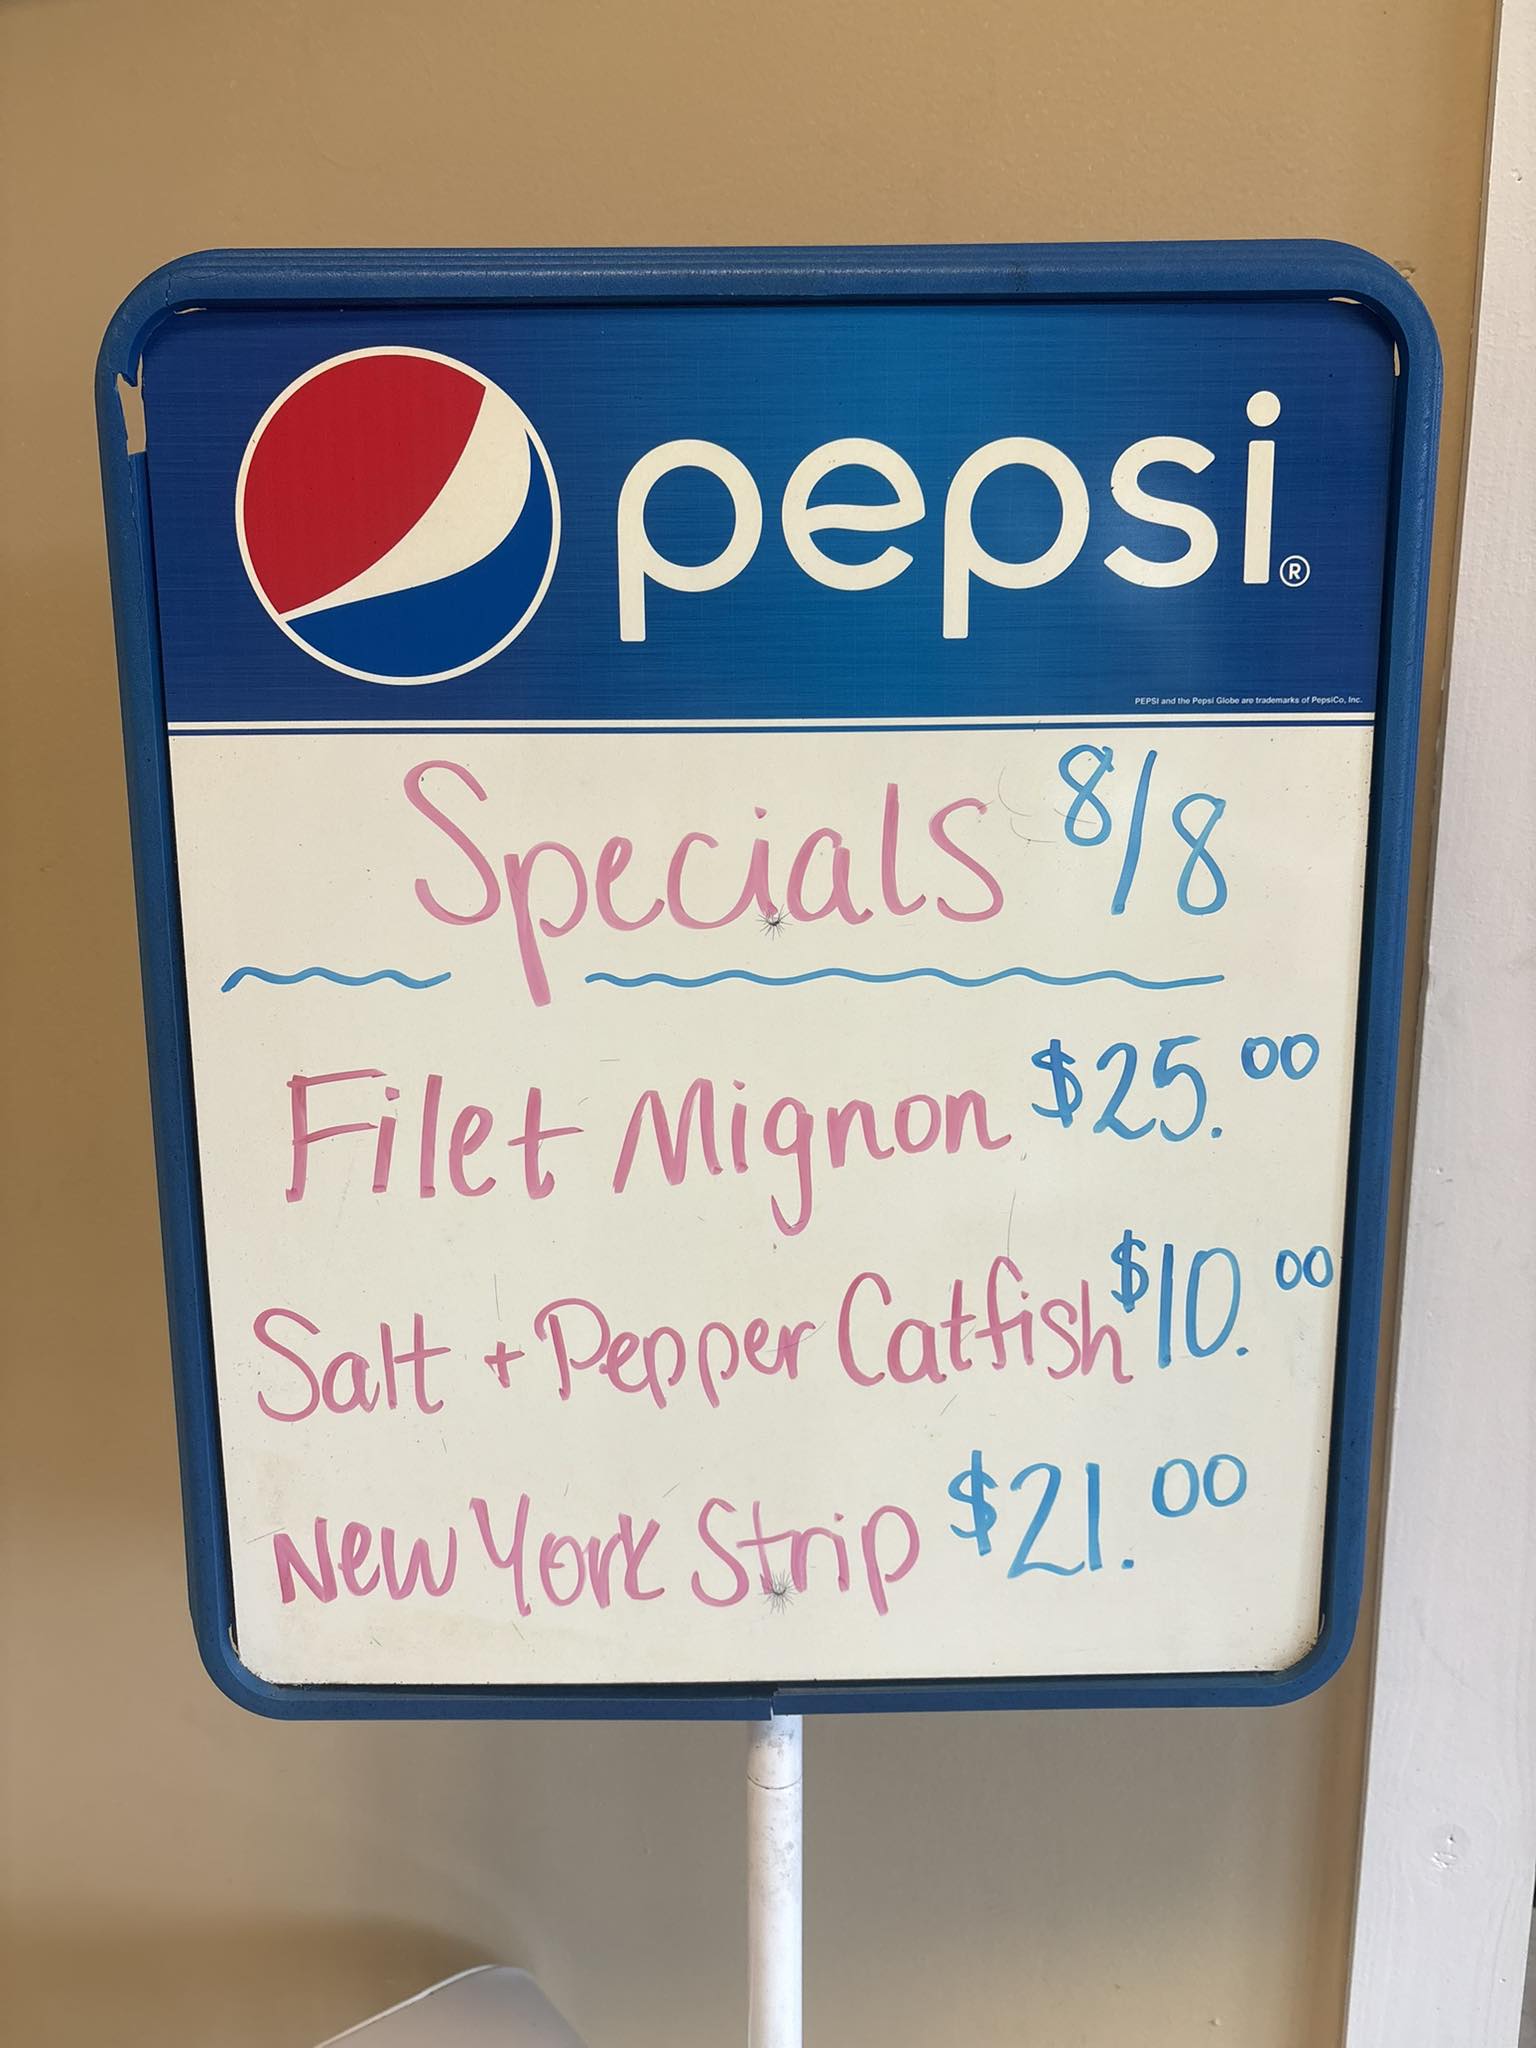 pepsi®
PEPSI and the Pepsi Globe are trademarks of PepsiCo, Inc.
Specials 8/8
Filet Mignon $25.00
Salt + Pepper Catfish $10.00
New York Strip $21.00